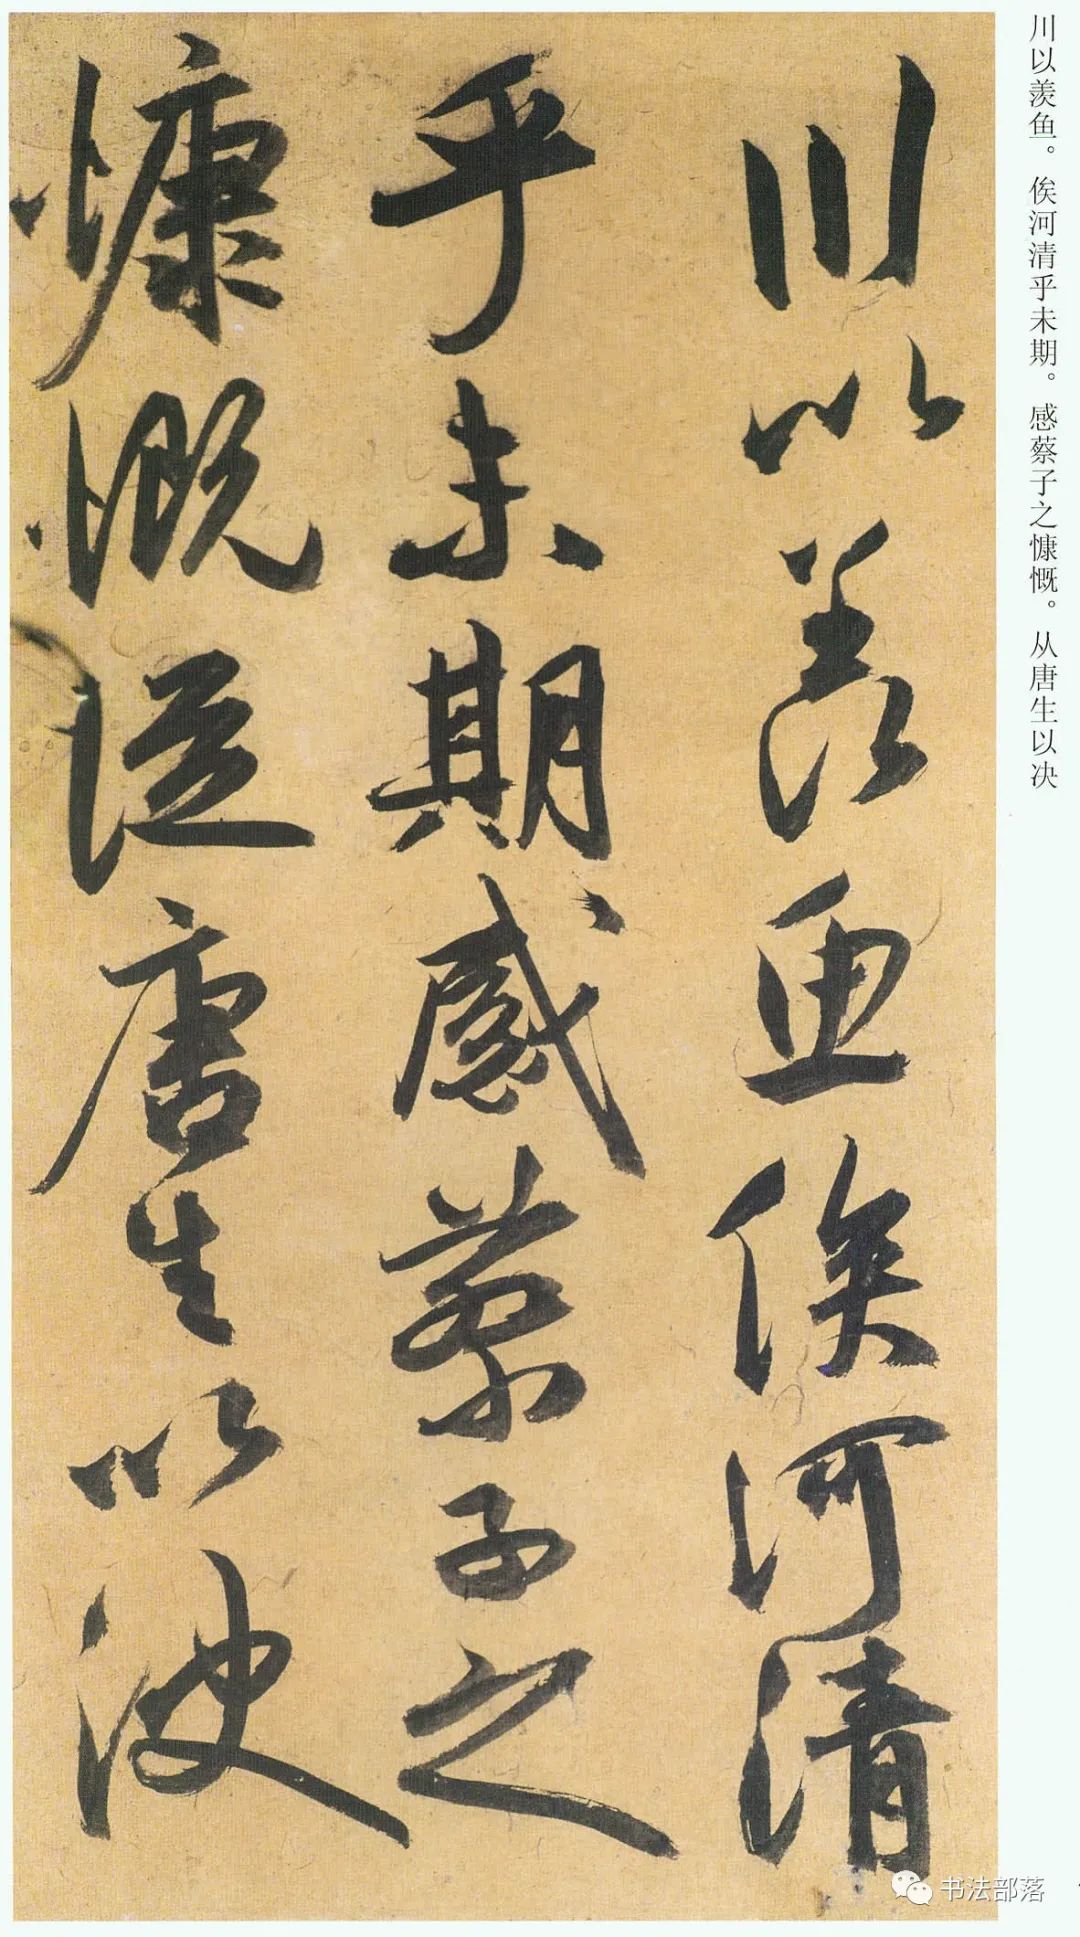 川以羡鱼。俟河清乎未期。感蔡子之慷慨。从唐生以决
川以羡鱼俟河清
乎未期感蔡子之
慷慨从唐生以决
书法部落